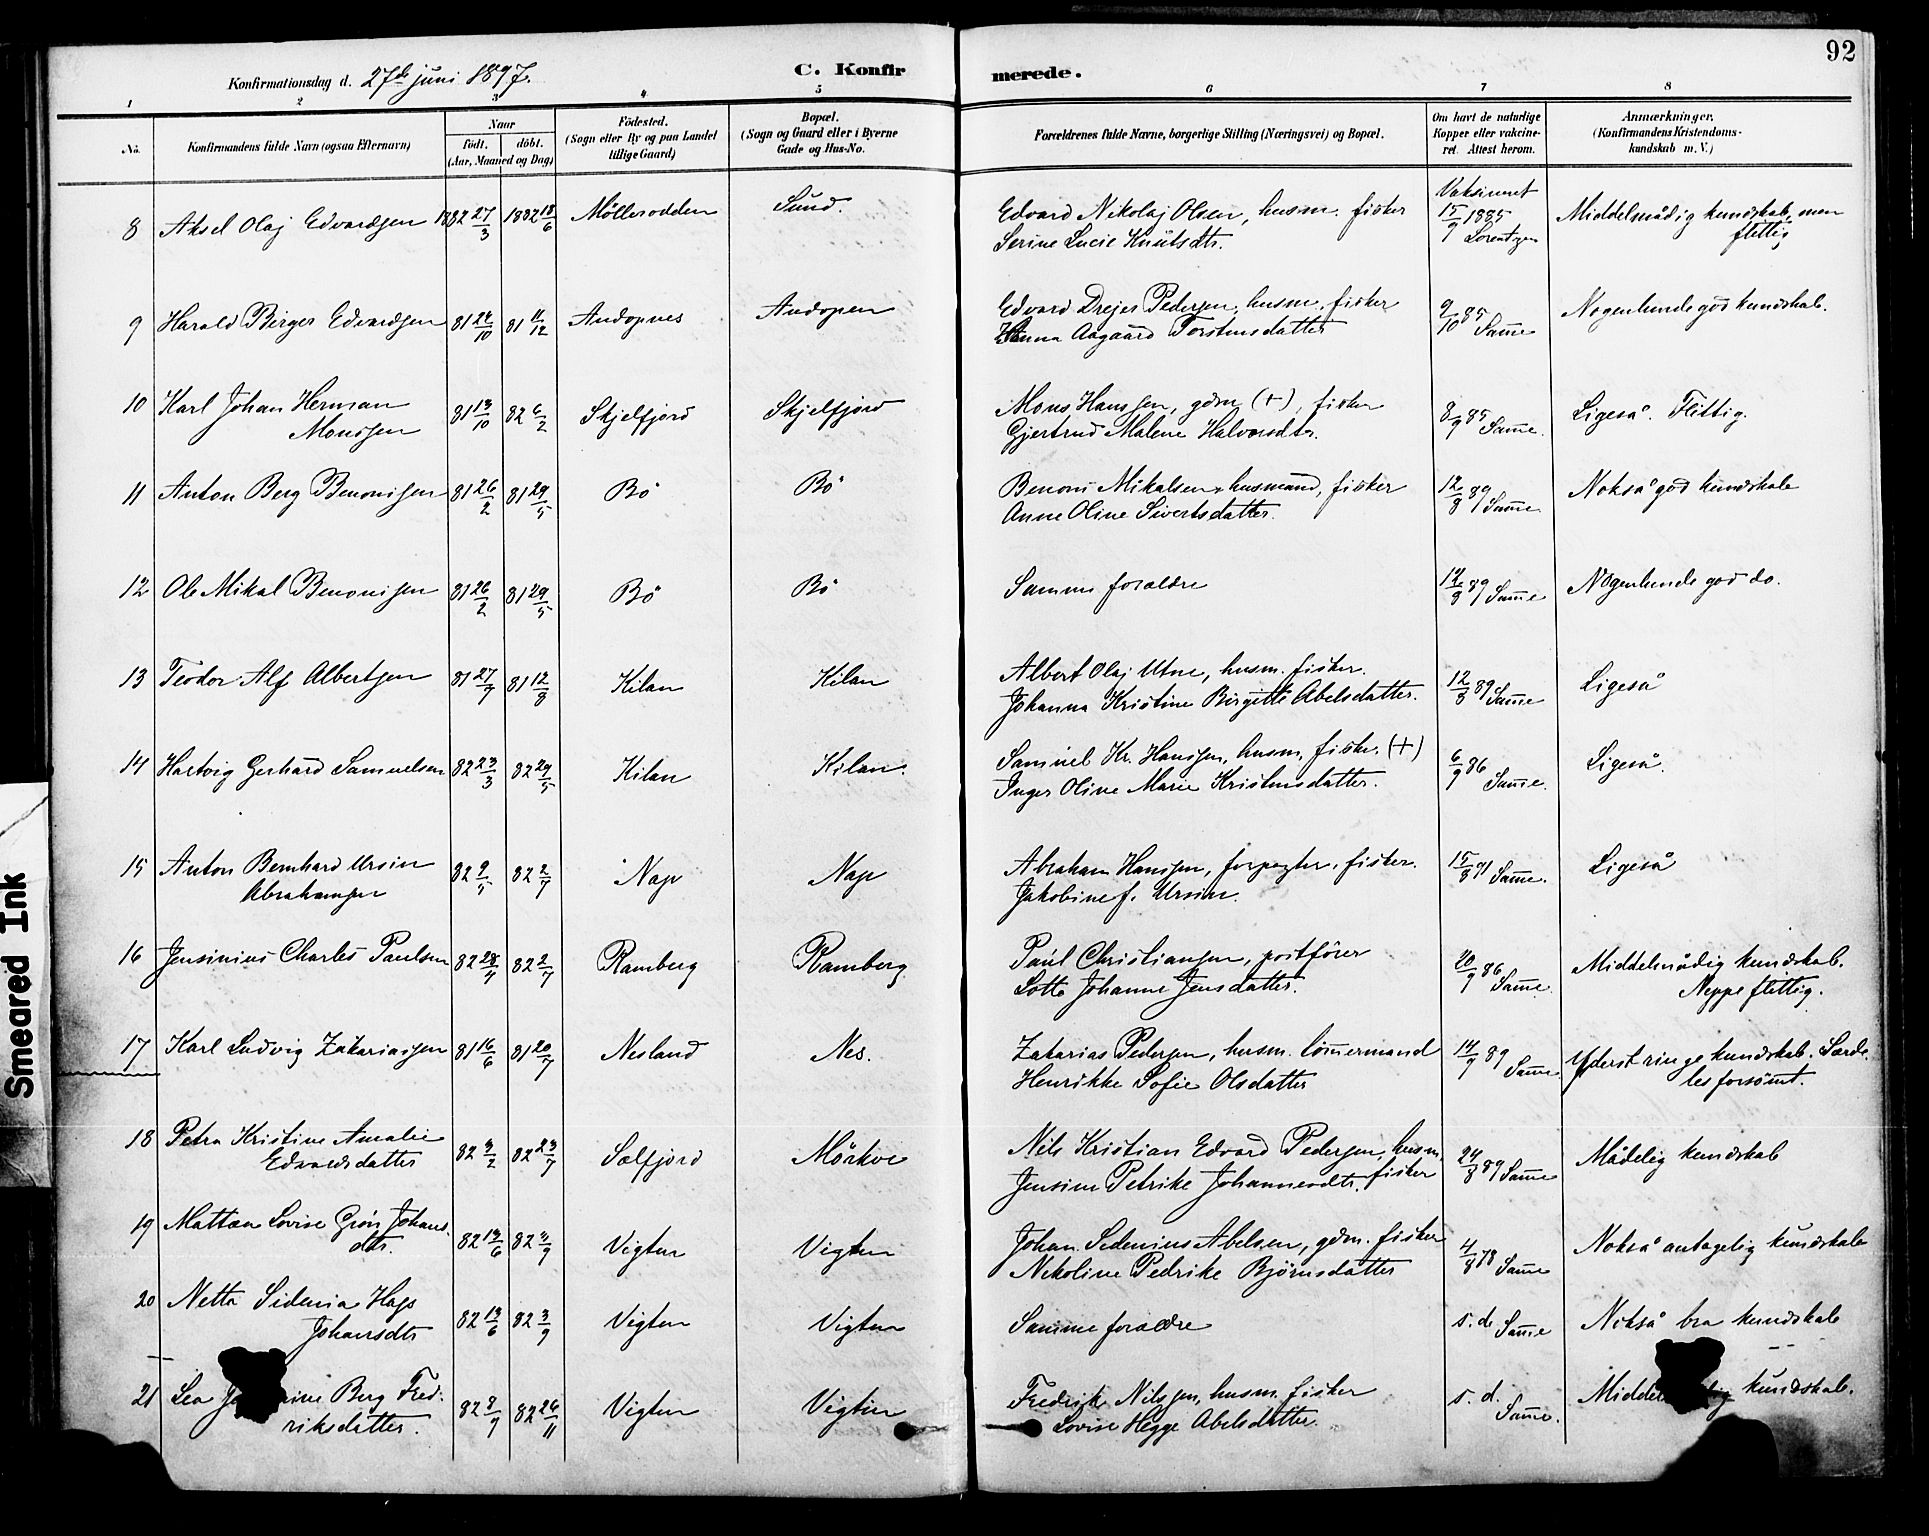 92
Konfirmationsdag d. 27de juni 1897.
C. Konfir
merede.
1 2 3 4 5 6 7 8
No.
Konfirmandens fulde Navn (ogsaa Efternavn)
Naar
födt. döbt.
(Aar, Maaned og Dag)
Födested.
(Sogn eller By og paa Landet
tillige Gaard)
Bopæl.
(Sogn og Gaard eller i Byerne
Gade og Hus-No.
Forældrenes fulde Navne, borgerlige Stilling (Næringsvei) og Bopæl.
Om havt de naturlige
Kopper eller vakcine-
ret. Attest herom.
Anmærkninger.
(Konfirmandens Kristendoms-
kundskab m. V.)
8 Aksel Olaj Edvardsen 1882 27/3 1882 18/6 Mölleodden Sund. Edvard Nikolaj Olsen, husm. fisker
Serine Lucie Knutsdtr.
Vaksineret
15/9 1885
Lorentzen
Middelmådig kundskab, men
flittig
9 Harald Birger Edvardsen 81 24/10 81 11/12 Andopnes Andopen Edvard Drejer Pedersen, husm. fisker
Hanna Aagaard Torstensdatter
9/10 85 Samme
Nogenlunde god kundskab.
10 Karl Johan Herman
Monssen
81 13/10 82 6/2 Skjelfjord Skjelfjord Mons Hanssen, gdm (+), fisker
Gjertrud Malene Halvorsdtr.
8/9 85 Samme.
Ligeså. Flittig.
11 Anton Berg Benonisen 81 26/2 81 29/5 Bö Bö Benoni Mikalsen, husmand, fisker
Anne Oline Sivertsdatter.
12/8 89 Samme
Nokså god kundskab
12 Ole Mikal Benonisen 81 26/2 81 29/5 Bö Bö Samme forældre
12/8 89 Samme
Nogenlunde god do.
13 Teodor Alf Albertsen 81 27/7 81 12/8 Kilan Kilan Albert Olaj Utne, husm. fisker.
Johanna Kristine Birgitte Abelsdatter.
12/8 89 Samme
Ligeså
14 Hartvig Gerhard Samuelsen 82 23/3 82 29/5 Kilan Kilan. Samuel Kr. Hanssen, husm, fisker. (+)
Inger Oline Marie Kristensdatter.
6/9 86 Samme.
Ligeså.
15 Anton Bernhard Ursin
Abrahamsen
82 9/5 82 2/7 Nap Nap Abraham Hanssen, forpagter, fisker.
Jakobine f. Ursin.
15/8 91 Samme.
Ligeså
16 Jensinius Charles Paulsen 82 2/7 Ramberg Ramberg Paul Christiansen, postförer
Lotte Johanne Jensdatter.
20/9 86 Samme.
Middelmådig kundskab.
Neppe flittig.
17 Karl Ludvig Zakariassen 81 16/6 81 20/7 Nesland Nes. Zakarias Pedersen, husm. tömmermand
Henrikke Sofie Olsdatter
14/9 89 Samme
Yderst ringe kundskab. Særde-
les forsömt.
18 Petra Kristine Amalie
Edvardsdatter
82 3/2 82 23/7 Selfjord Mörkve Nils Kristian Edvard Pedersen, husm,
Jensine Petrike Johannesdtr. fisker
24/8 89 Samme
Mådelig kundskab
19 Mattea Lovise Grön Johans
dtr.
82 13/6 82 3/9 Vigten Vigten Johan Sedenius Abelsen, gdm. fisker
Nekoline Pedrike Björnsdatter
4/8 Samme
Nokså antagelig kundskab
20 Netta Sidenia Hags
Johansdtr
82 13/6 82 3/9 Vigten Vigten Samme forældre
s. d. Samme
Nokså bra kundskab
21 Lea Berg Fred-
riksdatter.
82 82 26/11 Vigten Vigten Fredrik Nilssen, husm. fisker
Lovise Hegge Abelsdatter.
s. d. Samme.
kundskab.
Smeared Ink